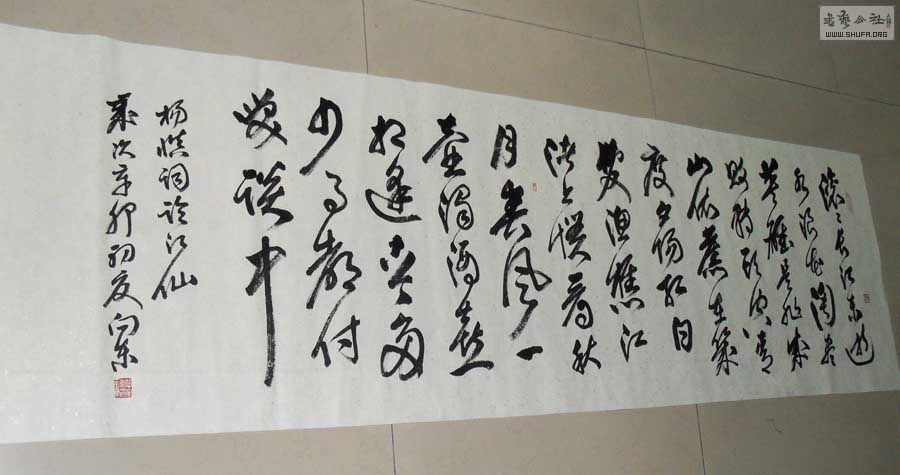 滚滚长江东逝
水浪花淘尽
英雄是非成
败转头空青
山依舊在几
度夕阳红白
发渔樵江
渚上惯看秋
月春风一
壶浊酒喜
相逢古今多
少事都付
笑谈中
杨慎词临江仙
岁次辛卯初夏向东
书艺公社
WWW.SHUFA.ORG